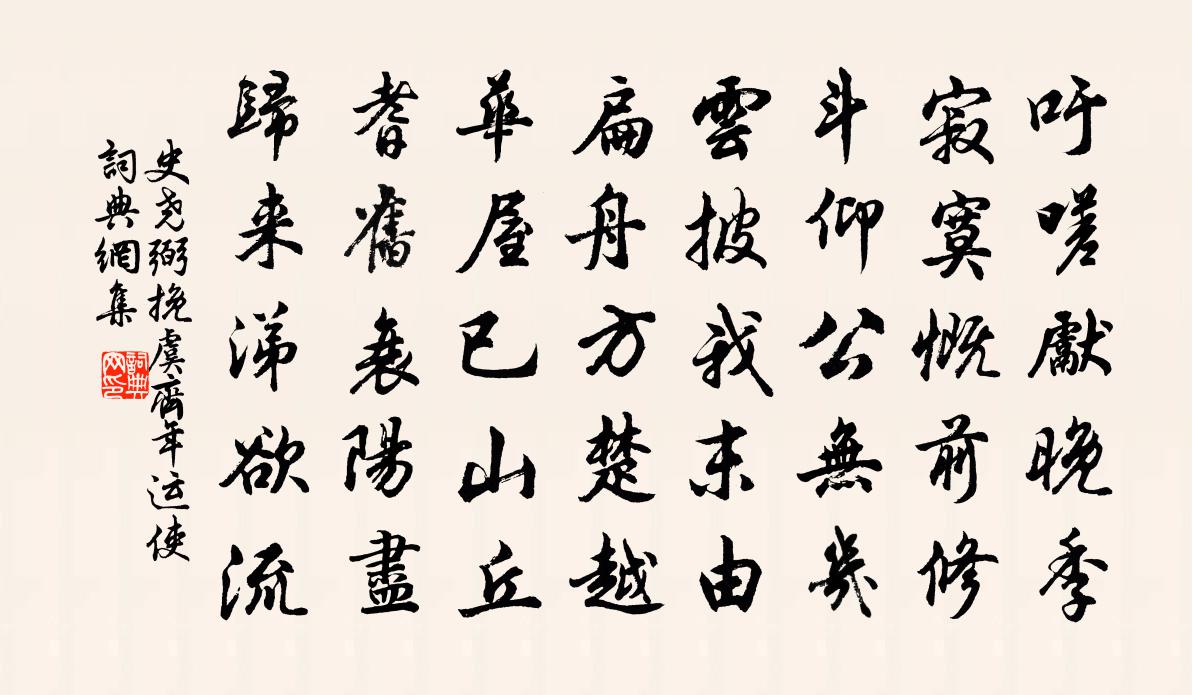 吁嗟獻晚季
寂寞慨前修
斗仰公無幾
雲披我末由
扁舟方楚越
華屋已山丘
耆舊襄陽盡
歸来涕欲流
史尧弼挽虞齊年运使
詞典網集
詞典网印